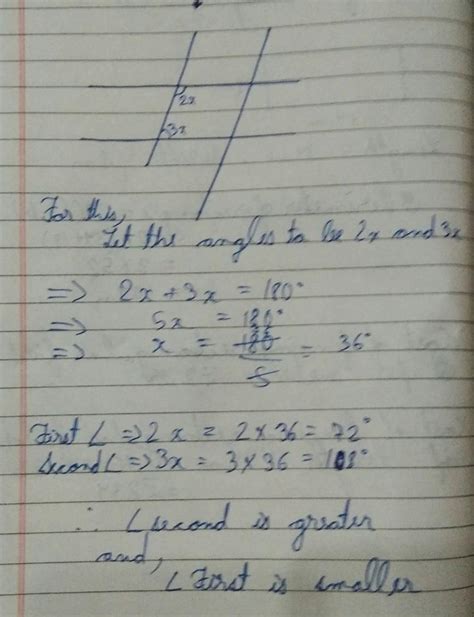 2x
3x
For this,
Let the angles to be 2x and 3x
=> 2x + 3x = 180°
=> 5x = 180°
=> x = 180/5 = 36°
First ∠ => 2x = 2 × 36 = 72°
Second ∠ => 3x = 3 × 36 = 108°
∴ ∠ second is greater
and,
∠ First is smaller